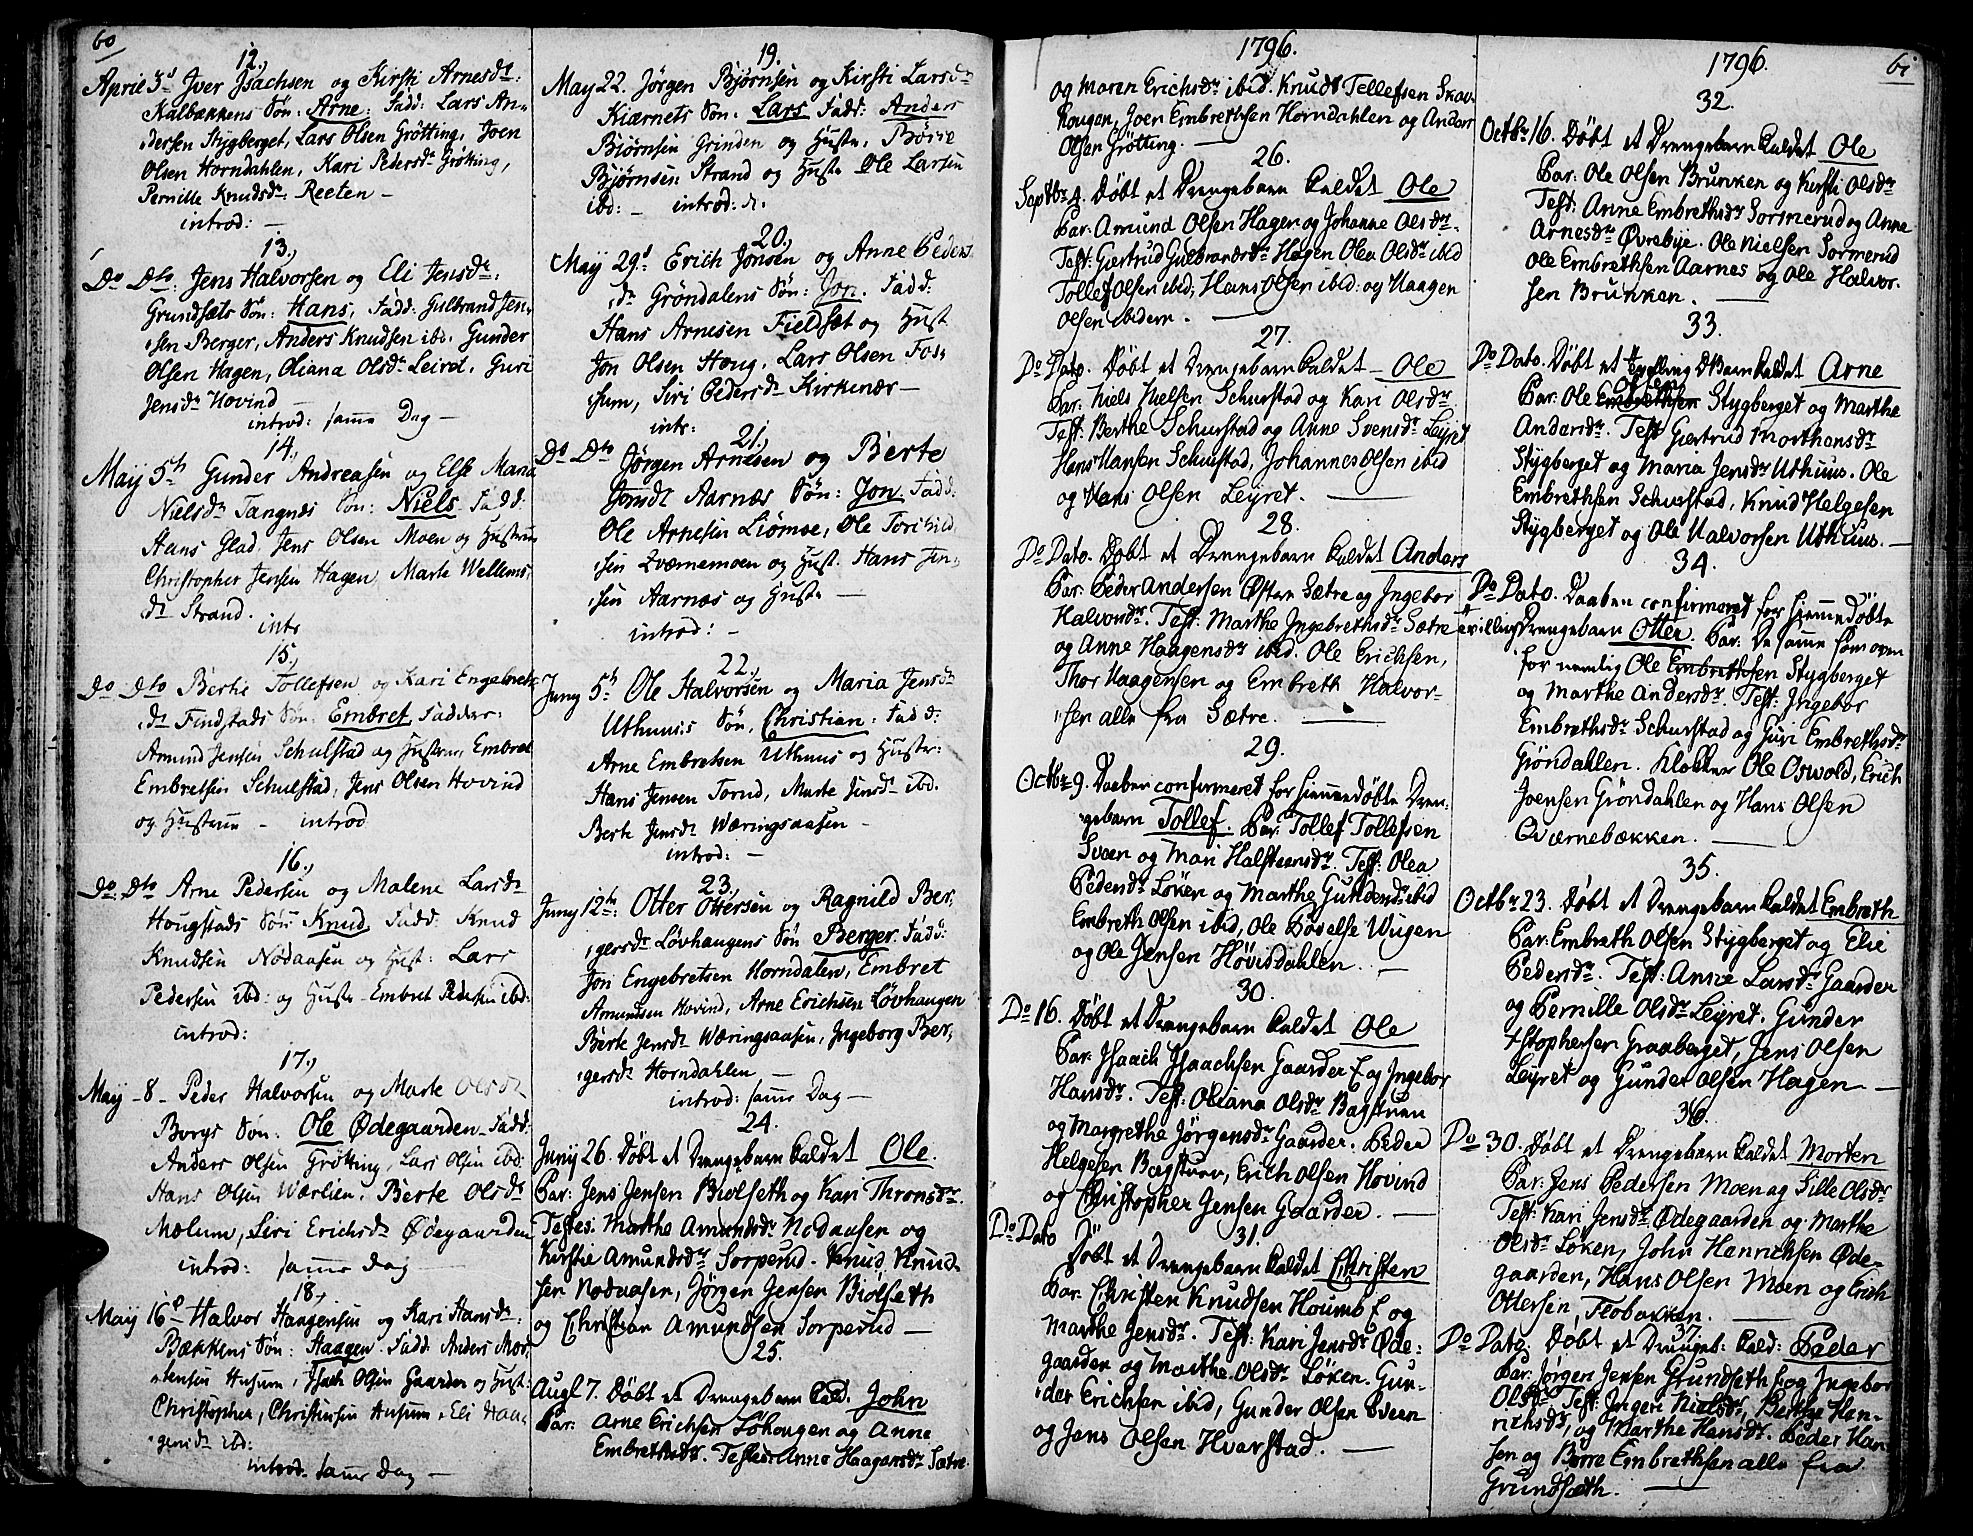 60
12.
April 3d Iver Isachsen og Kirsti Arnesdr:
Kalbækkens Søn: Arne. Fadd: Lars An-
dersen Stygberget, Lars Olsen Grötting, Joen
Olsen Horndahlen, Kari Pedersdr Grötting,
Pernille Knudsdr: Reeten -
introd: -
13.,
Do Dto: Jens Halvorsen og Eli Jensdr:
Grundsæts Søn: Hans, Fadd: Gulbrand Jen-
sen Berger, Anders Knudsen ibd. Gunder
Olsen Hagen, Oliana Olsdr Leiret, Guri
Jensdr Hovind -
introd: samme Dag -
14.,
May 5th Gunder Andreasen og Else Maria
Nielsdr Tangnes Søn: Niels. Fadd:
Hans Glad, Jens Olsen Moen og Hustrue
Christopher Jensen Hagen, Marte Wellems-
dr Strand.
intr
15.,
Do Dto Berte Tollefsen og Kari Engebrets-
dr Findstads Søn: Embret Fadder:
Amund Jensen Schulstad og Hustrue, Embret
Embretsen Schulstad, Jens Olsen Hovind
og Hustrue - introd
16.,
Do Dto Arne Pedersen og Malene Larsdr
Hougstads Søn Knud, Fadd: Knud
Knudsen Nodaasen og Hust: Lars
Pedersen ibd: og Hustr - Embret Pedersen ibd:
introd:
17.,
May - 8 - Peder Halvorsen og Marte Olsdr
Borgs Søn: Ole Ødegaarden - Fadd:
Anders Olsen Grötting, Lars Olsen ibd:
Hans Olsen Wærlien, Berte Olsdr
Mælum, Siri Erichsdr Ødegaarden
introd: samme Dag -
18.,
May 16d Halvor Haagensen og Kari Hansdr:
Bækkens Søn: Haagen. Fadd: Anders Mor-
tensen Husum, Isach Olsen Gaarder og Hust:
Christopher, Christensen Husum, Eli Haa-
gensdr ibd:
introd: samme Dag -
19.
May 22. Jörgen Bjørnsen og Kirsti Larsdr
Kiærnets Søn. Lars Fadd: Anders
Biørnsen Grinden og Hustr, Børre
Bjørnsen Strand og Hustr Ole Larsen
ibd: - introd: d.
20.,
May 29d Erich Jonsen og Anne Peders
dr Gröndalens Søn: Jon. Fadd:
Hans Arnesen Fieldsæt og Hust
Jon Olsen Houg, Lars Olsen Fos-
sum, Siri Pedersdr Kirkenær -
intr:
21.,
Do Dto Jørgen Arnesen og Berte
Jonsdr Aarnæs Søn: Jon Fadd:
Ole Arnesen Liömoe, Ole Torchild-
sen Qværnemoen og Hust. Hans Jen-
sen Aarnæs og Hustr -
introd: -
22.,
Juny 5th Ole Halvorsen og Maria Jensdr
Uthuuses Søn, Christian: Fadd:
Arne Embretsen Uthuus og Hustr:
Hans Jensen Torud, Marte Jensdr ibd.
Berte Jensdr Wæringsaasen -
introd: -
23.,
Juny 12te: Otter Ottersen og Ragnild Ber-
gersdr Lövhaugens Søn Berger. Fadd:
Jon Engebretsen Horndalen, Embret
Amundsen Hovind, Arne Erichsen Lövhaugen
Berte Jensdr Wæringsaasen, Ingeborg Ber-
gersdr Horndahlen -
introd: samme Dag -
24.
Juny 26. Döbt et Drengebarn kaldet Ole.
Par: Jens Jensen Biölseth og Kari Thronsdr
Testes: Marthe Amundsdr Nodaasen og
Kirstie Amundsdr Sorperud. Knud Knud-
sen Nodaasen, Jørgen Jensen Biölseth
og Christian Amundsen Sorperud -
25.
Augl 7. Döbt et Drengebarn kald. John
Par: Arne Erichsen Löhougen og Anne
Embrethsdr. Testes: Anne Haagensdr Sætre
1796.
og Maren Erichsdr ibid. Knudt Tellefsen Skov-
hougen, Joen Embrethsen Horndahlen og Anders
Olsen Grötting. -
26.
Septbr 4. Döbt et Drengebarn kaldet Ole
Par: Amund Olsen Hagen og Johanne Olsdr.
Test: Giertrud Gulbrandsdr Hagen Olea Olsdr ibid
Tollef Olsen ibid, Hans Olsen ibid: og Haagen
Olsen ibidem. -
27.
Do Dato. Döbt et Drengebarn kaldet - Ole
Par: Niels Nielsen Schurstad og Kari Olsdr.
Test: Berthe Schurstad og Anne Svensdr Leyret
Hans Hansen Schurstad, Johannes Olsen ibid
og Hans Olsen Leyret. -
28.
Do Dato. Döbt et Drengebarn kaldet Anders
Par: Peder Andersen Østre Sætre og Ingebor
Halvorsdr. Test: Marthe Ingebrethsdr Sætre
og Anne Haagensdr ibid. Ole Erichsen,
Thor Haagensen og Embreth Halvor-
sen alle fra Sætre. -
29.
Octbr 9. Daaben confirmeret for hiemmedöbte Dren-
gebarn Tollef. Par: Tollef Tollefsen
Sveen og Mari Halsteensdr. Test: Olea
Pedersdr Löken og Marthe Guttormsdr ibid
Embreth Olsen ibid, Ole Böyelse Wugen
og Ole Jensen Høvisdahlen. -
30.
Do 16. Döbt et Drengebarn kaldet Ole
Par: Isaach Isaachsen Gaarder E og Ingebor
Hansdr. Test: Oliana Olsdr Bagstuen
og Margrethe Jørgensdr Gaarder. Peder
Helgesen Bagstuen, Erich Olsen Hovind
og Christopher Jensen Gaarder. -
31.
Do Dato Döbt et Drengebarn kaldet Christen
Par: Christen Knudsen Houmb E og
Marthe Jensdr. Test: Kari Jensdr Øde-
gaarden og Marthe Olsdr Löken. Gun-
der Erichsen ibid, Gunder Olsen Sveen
og Jens Olsen Hvarstad. -
1796.
61
32.
Octbr 16. Döbt et Drengebarn kaldet Ole
Par: Ole Olsen Brunken og Kersti Olsdr
Test: Anne Embrethsdr Sormerud og Anne
Arnesdr Øvrebye. Ole Nielsen Sormerud
Ole Embrethsen Aarnes og Ole Halvor-
sen Brunken. -
33.
Do Dato. Döbt et tvilling D Barn kaldet Arne
Par: Ole Embrethsen Olsen Stygberget og Marthe
Andersdr. Test: Giertrud Morthensdr
Stygberget og Maria Jensdr Uthuus. Ole
Embrethsen Schurstad, Knud Helgesen
Stygberget og Ole Halvorsen Uthuus. -
34.
Do Dato. Daaben confirmeret for hiemmedöbte
tvilling Drengebarn Otter. Par: De samme som oven
for nemlig Ole Embrethsen Stygberget
og Marthe Andersdr. Test: Ingebor
Embrethsdr Schurstad og Guri Embrethsdr
Gröndahlen. Klokker Ole Oswold, Erich
Joensen Gröndahlen og Hans Olsen
Qværnebækken. -
35.
Octbr 23. Döbt et Drengebarn kaldet Embreth
Par: Embreth Olsen Stygberget og Elie
Pedersdr. Test: Anne Larsdr Gaarder
og Pernille Olsdr Leyret. Gunder
Xstophersen Graaberget, Jens Olsen
Leyret og Gunder Olsen Hagen -
36.
Do 30. Döbt et Drengebarn kaldet Morten
Par: Jens Pedersen Moen og Sille Olsdr
Test: Kari Jensdr Ødegaarden og Marthe
Olsdr Löken, John Henrichsen Øde-
gaarden, Hans Olsen Moen og Erich
Ottersen, Flobakken. -
37.
Do Dato. Döbt et Drengeb: kald: Peder
Par: Jørgen Jensen Grundseth E og Ingebor
Olsdr. Test: Ingeri Nielsdr, Berthe Hen-
richsdr, og Marthe Hansdr. Peder Han-
sen og Børre Embrethsen alle fra
Grundsæth. -